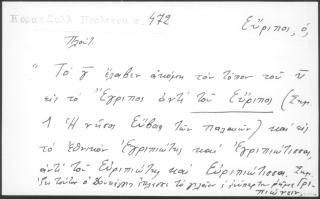 Κορα Συλλ Πρόλεγομ σ. 472
Εὔριπος, ὁ,
Πλούτ.
"Τὸ γ ἔλαβεν ἀκόμη τὸν τόπον τοῦ υ
εἰς τὸ Ἔγριπος ἀντὶ τοῦ Εὔριπος (Σημ.
1. Ἡ νῆσος Εὔβοια τῶν παλαιῶν) καὶ εἰς
τὸ ἐθνικὸν Ἐγριπιώτης καὶ Ἐγριπιώτισσα,
ἀντὶ τοῦ Εὐριπιώτης καὶ Εὐριπιώτισσα. Σημ.
Ἐκ τούτου ὁ